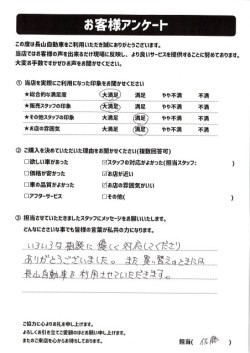 お客様アンケート
この度は長山自動車をご利用いただき誠にありがとうございます。
当店ではお客様の声を出来るだけ現場に反映し、より良いサービスを提供することに努めております。
大変お手数ですがぜひお声をお聞かせください。
① 当店を実際にご利用になった印象をお聞かせください
★総合的な満足度 大満足 満足 やや不満 不満
★販売スタッフの印象 大満足 満足 やや不満 不満
★その他スタッフの印象 大満足 満足 やや不満 不満
★お店の雰囲気 大満足 満足 やや不満 不満
② ご購入を決めていただいた理由をお聞かせください(複数回答可)
□欲しい車があった ☑スタッフの対応がよかった(担当スタッフ: )
□価格が安かった ☑お店が近い
□車の品質がよかった □お店の雰囲気がいい
□アフターサービス □その他( )
③ 担当させていただきましたスタッフにメッセージをお願いいたします。
どんなにささいな事でも皆様の言葉が私共の力になります。
いろいろな相談に優しく対応してくださり
ありがとうございました。また買い替えのときには
長山自動車を利用させていただきます。
ご協力に心よりお礼を申し上げます。
よろしくお引き立てご愛顧のほどお願い申し上げます。
またのご来店を心からお待ちしております。
担当( 佐藤 )